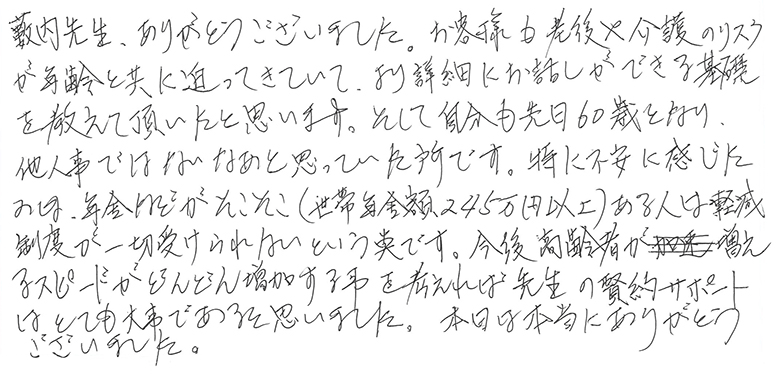 藪内先生、ありがとうございました。お客様も老後や介護のリスク
が年齢と共に迫ってきていて、より詳細にお話しができる基礎
を教えて頂いたと思います。そして自分も先日60歳となり、
他人事ではないなあと思っていた所です。特に不安に感じた
のは、年金などがそこそこ(世帯年金額245万円以上)ある人は軽減
制度が一切受けられないという点です。今後高齢者が増え
るスピードがどんどん増加する事を考えれば先生の賢約サポート
はとても大事であると思いました。本日は本当にありがとう
ございました。